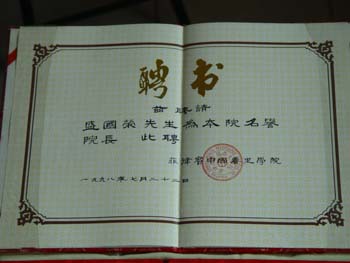 聘书
兹聘請
盛國榮先生為本院名譽
院長 此聘
菲律賓中國養生學院
一九九八年七月二十二日